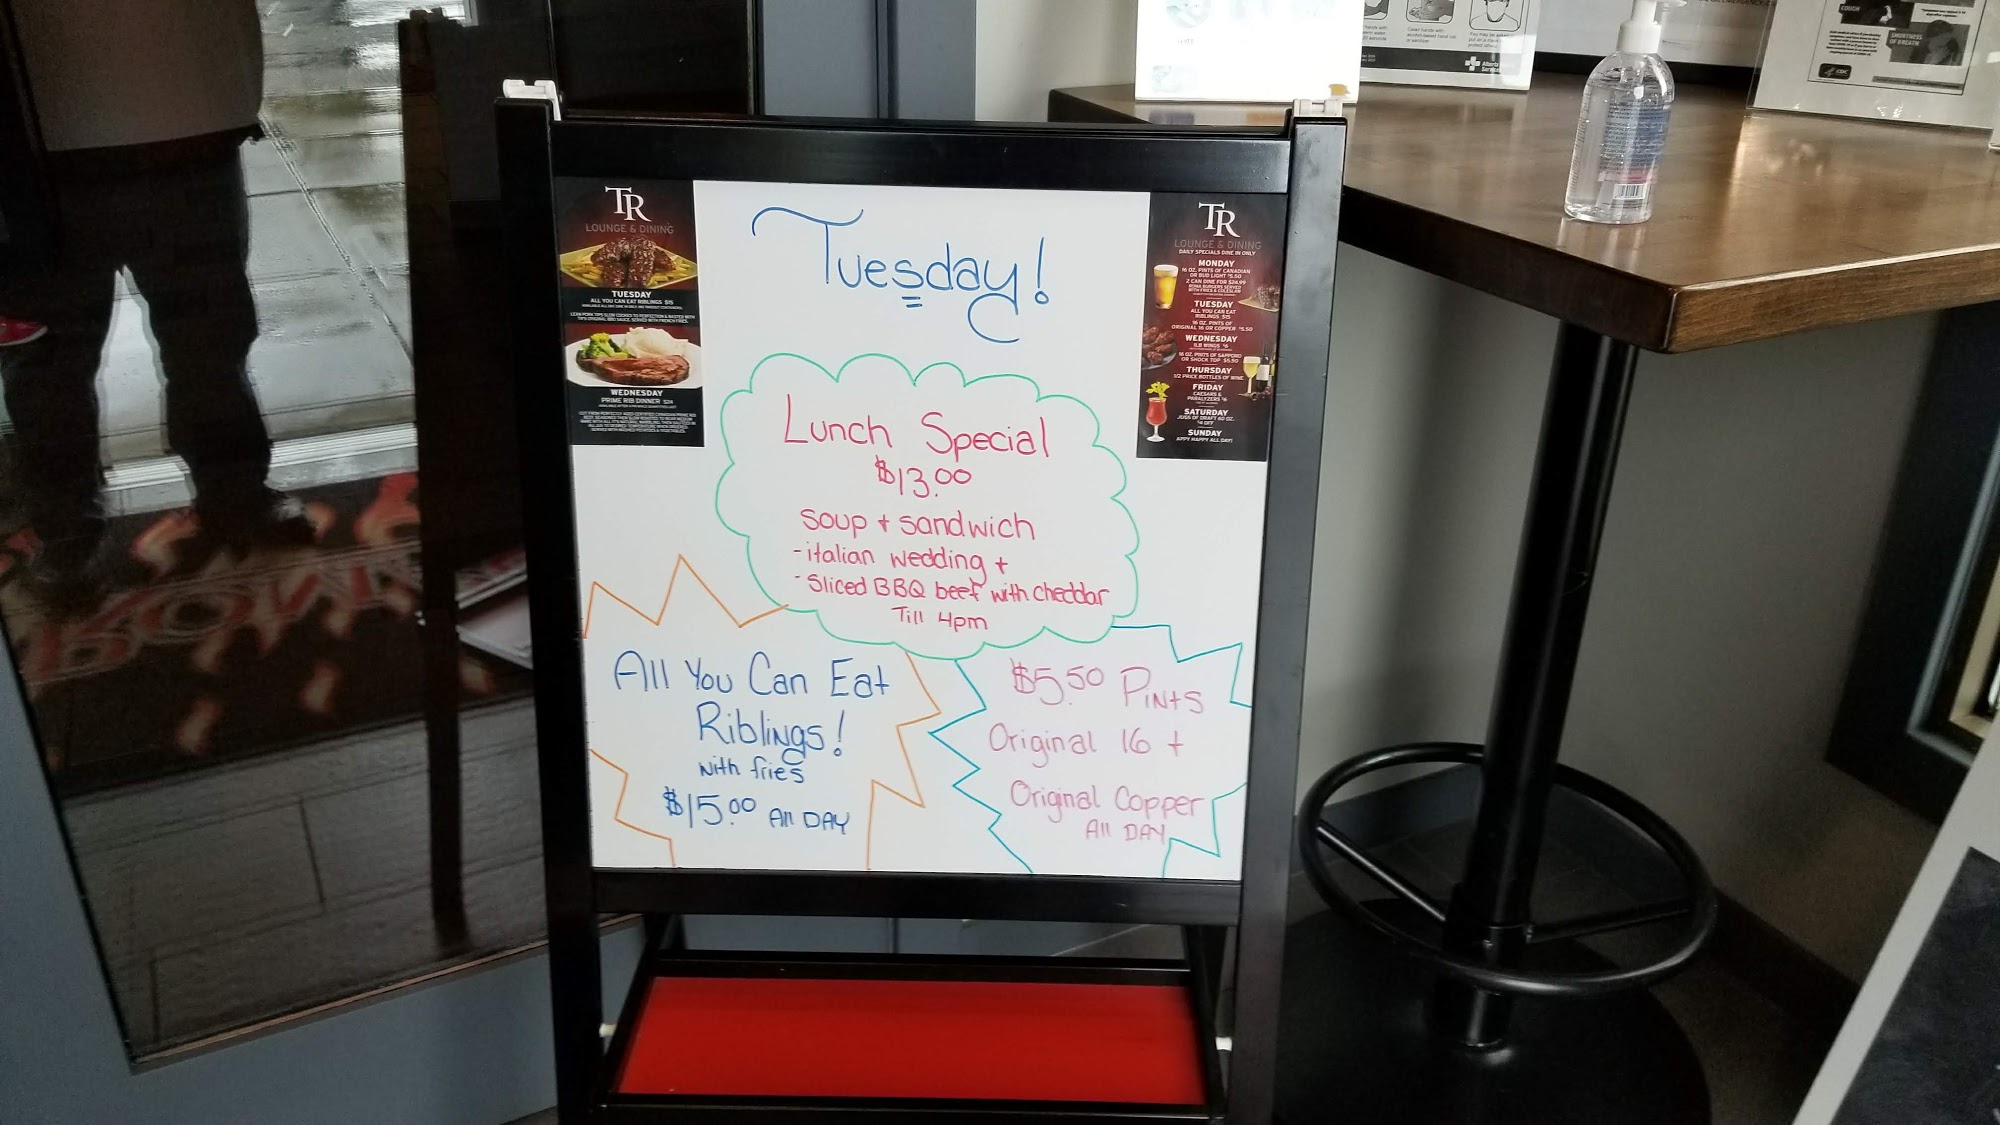 Tuesday!
Lunch Special
$13.00
soup + sandwich
- italian wedding +
- Sliced BBQ beef with cheddar
Till 4pm
All You Can Eat
Riblings!
with fries
$15.00 All DAY
$5.50 Pints
Original 16 +
Original Copper
All DAY
TR
LOUNGE & DINING
TUESDAY
ALL YOU CAN EAT RIBLINGS $15
WEDNESDAY
PRIME RIB DINNER $24
TR
LOUNGE & DINING
DAILY SPECIALS DINE IN ONLY
MONDAY
16 OZ. PINTS OF CANADIAN
OR BUD LIGHT $5.50
2 CAN DINE FOR $24.99
TUESDAY
ALL YOU CAN EAT
RIBLINGS $15
16 OZ. PINTS OF
ORIGINAL 16 OR COPPER $5.50
WEDNESDAY
1LB WINGS $6
16 OZ. PINTS OF SAPPORO
OR SHOCK TOP $5.50
THURSDAY
1/2 PRICE BOTTLES OF WINE
FRIDAY
CAESARS &
PARALYZERS $6
SATURDAY
JUGS OF DRAFT 60 OZ.
$4 OFF
SUNDAY
APPY HAPPY ALL DAY!
COUGH
SHORTNESS
OF BREATH
CDC